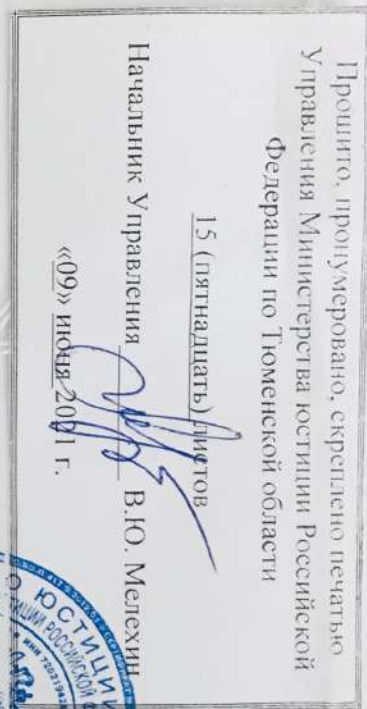 Прошито, пронумеровано, скреплено печатью
Управления Министерства юстиции Российской
Федерации по Тюменской области
15 (пятнадцать) листов
Начальник Управления В.Ю. Мелехин
«09» июня 2021 г.
ЮСТИЦИИ
РОССИЙСКОЙ